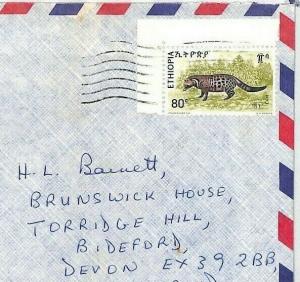 ETHIOPIA ኢትዮጵያ
80c
H. L. Barnett,
BRUNSWICK HOUSE,
TORRIDGE HILL,
BIDEFORD,
DEVON EX39 2BB,